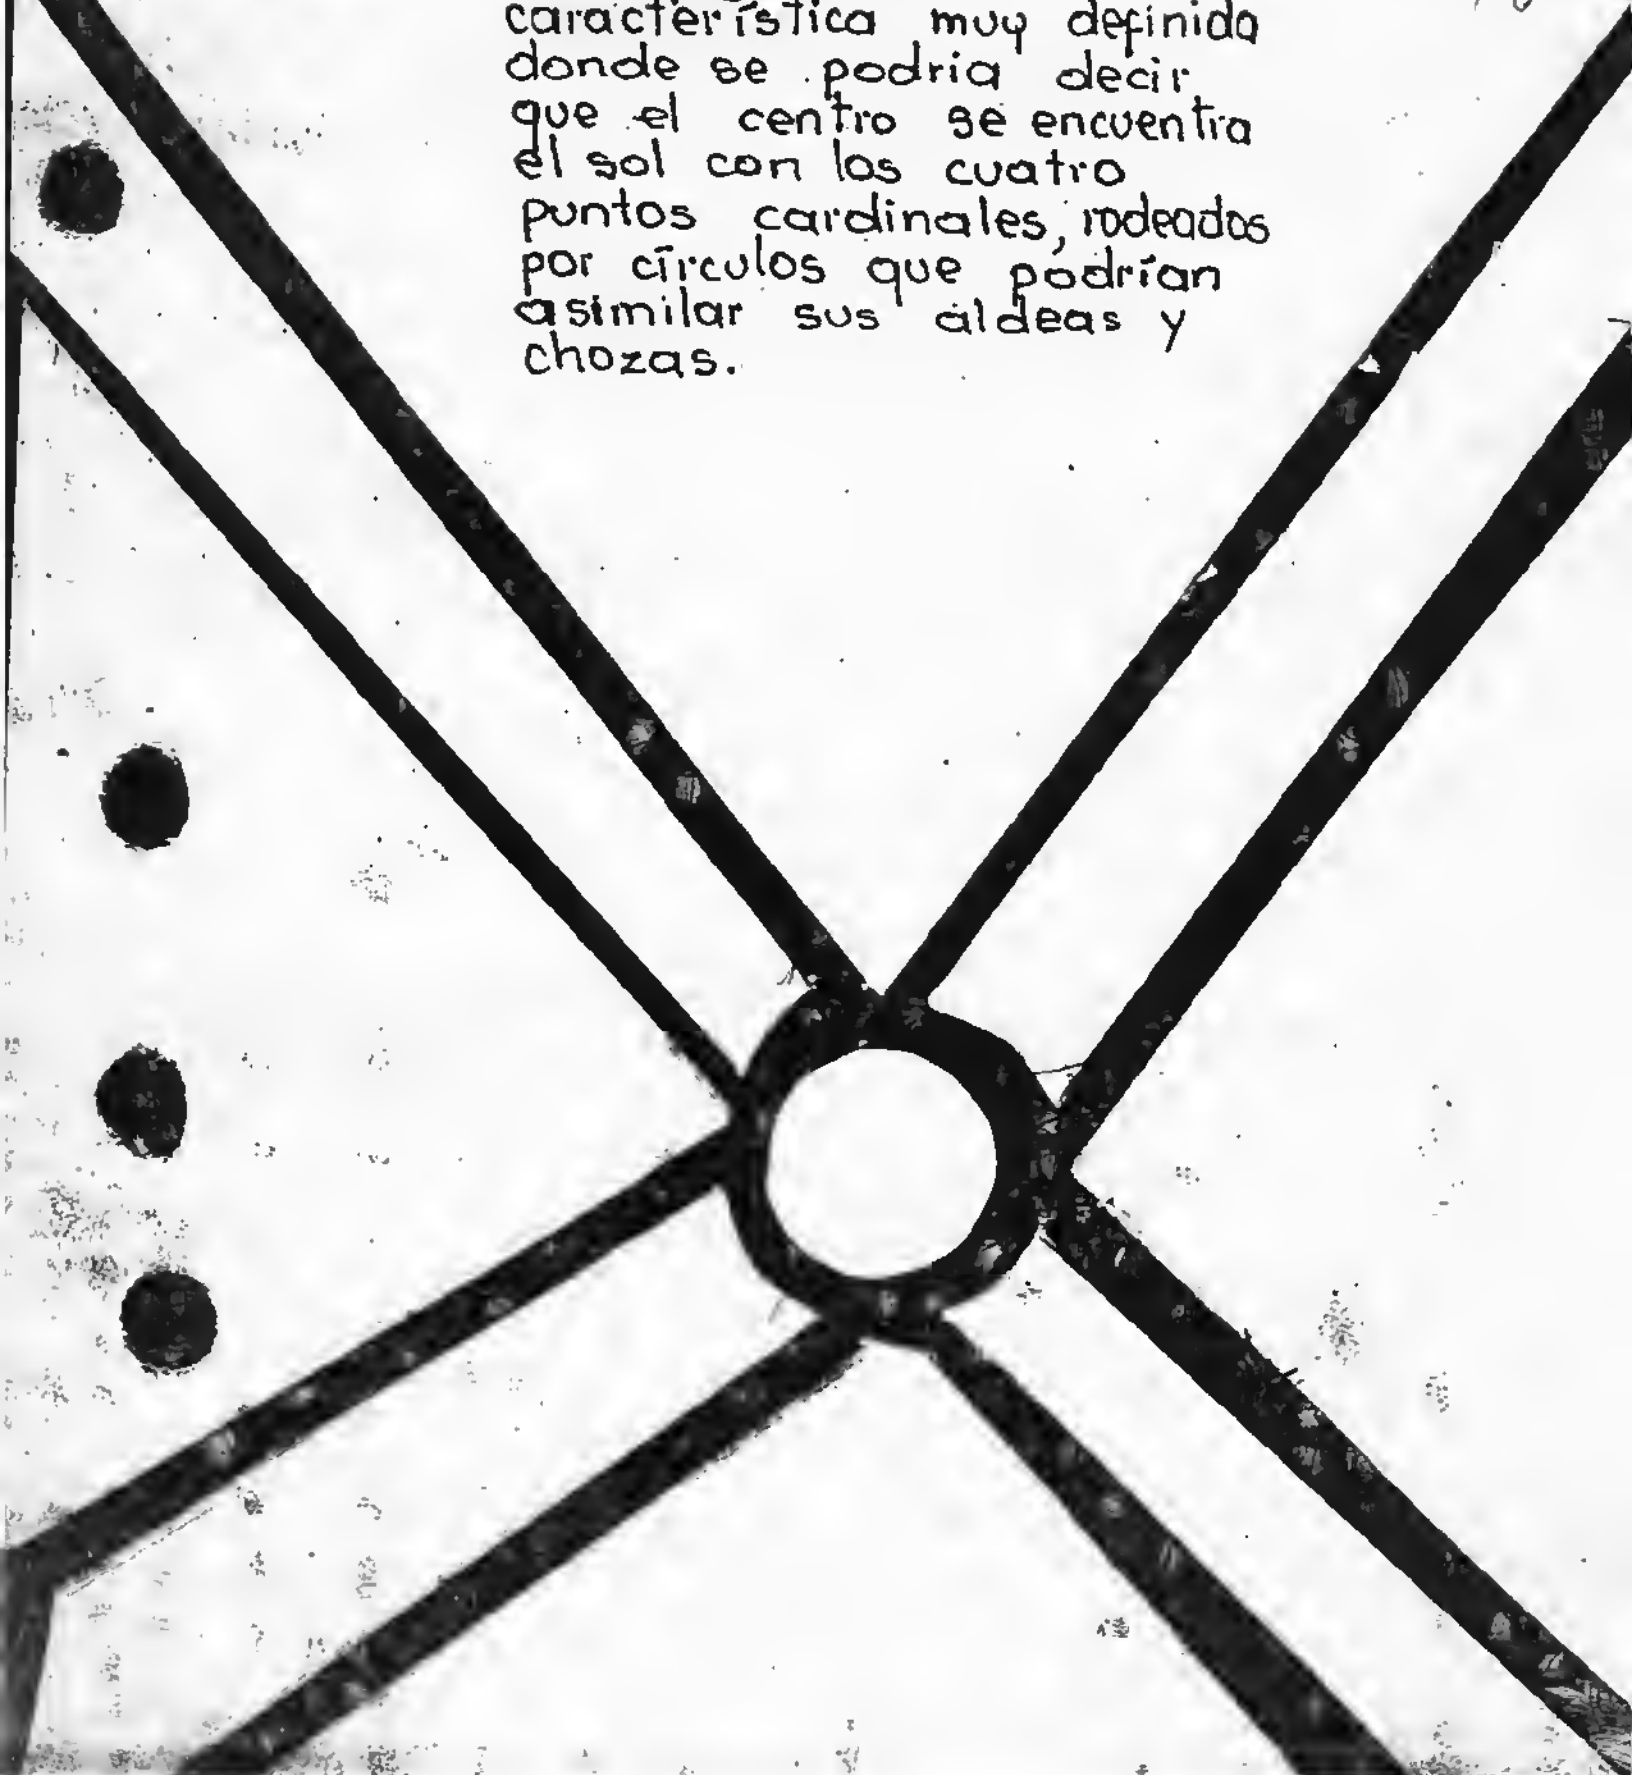 característica muy definida
donde se podria decir
que el centro se encuentra
el sol con los cuatro
puntos cardinales, rodeados
por círculos que podrían
asimilar sus aldeas y
chozas.